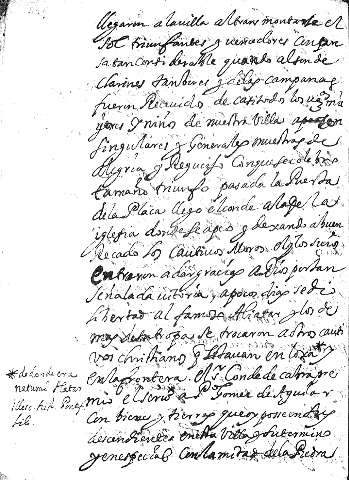 llegaron a la villa al tras montarse el
sol triunfantes y vencedores
quando al son de
clarines tambores y de las campanas
fueron Recevido de casi todos los
y niños de nuestra Villa
singulares y Generales muestras de
Alegria y Regucixo Conque se celebro
tamaño triunfo pasada la Puerta
de la Plaça llego el conde a la de la
iglesia donde se apeo y dexando a buen
Recado los Cautivos Moros
entraron a dar gracias a Dios por tan
señalada vitoria y a pocos dias se dio
libertad al famoso Aliatar y los de
mas de la tropa se trocaron a otros cauti
vos christianos y estavan en loxa *y
en la frontera. El Sr. Conde de cabra pre
mio el servicio a P.º Gomez de Aguilar
con bienes y tierras que oy poseen sus
descendientes en esta Villa y su termino
y en especial con la mitad de la Piedra
* de donde era
natural Aliatar